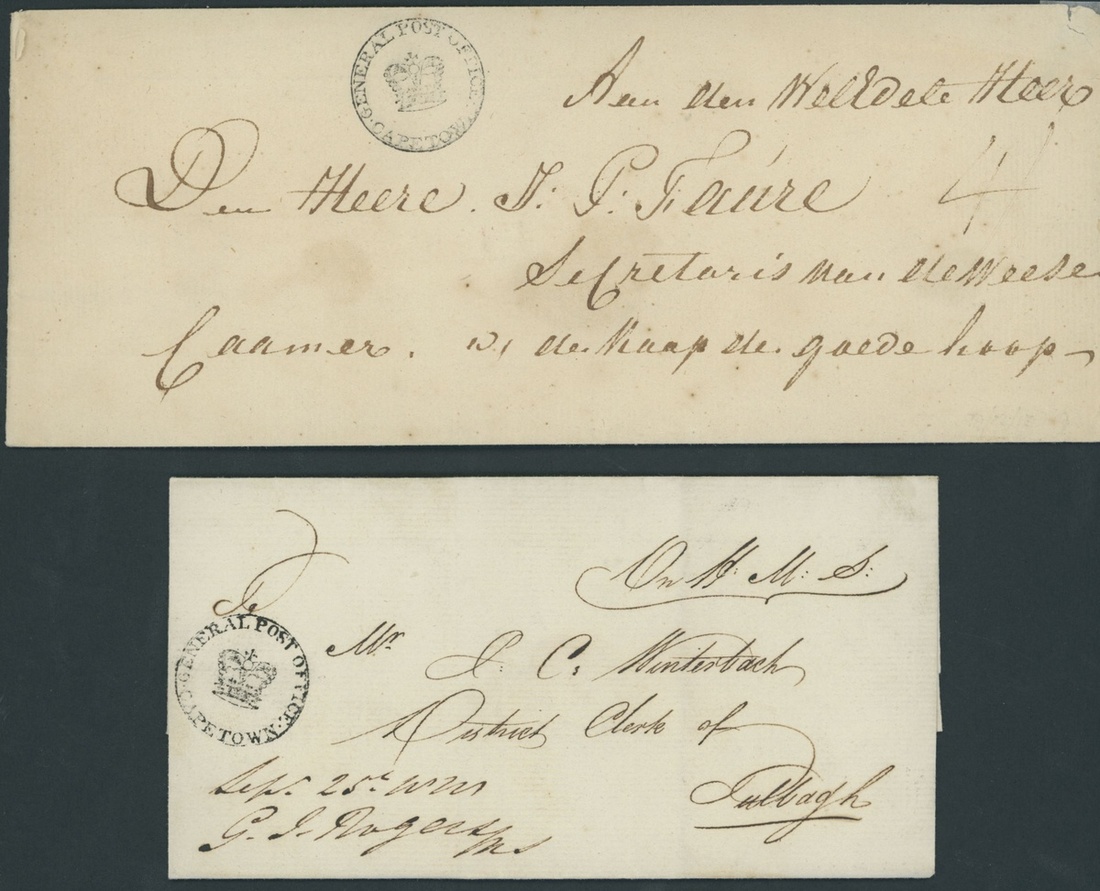 GENERAL POST OFFICE
CAPE TOWN
Aan den WelEdele Heer
Den Heere J: P: Faure 4
Secretaris van de Weese
Caamer. de Kaap de goede hoop
On H: M: S:
To
GENERAL POST OFFICE
CAPE TOWN
Mr
P: C: Winterbach
District Clerk of
Tulbagh
Sept. 25th
G. J. Rogers